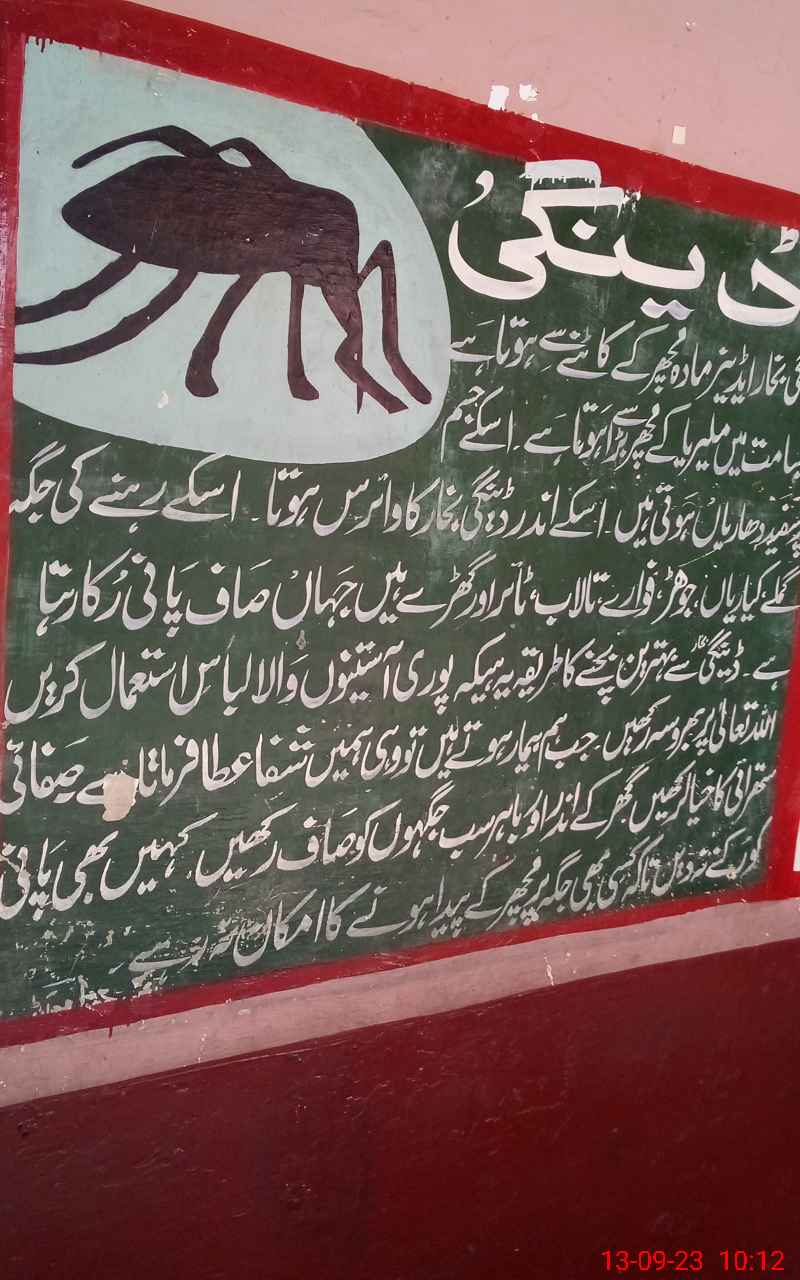 ڈینگی
بخار ایڈیز مادہ مچھر کے کاٹنے سے ہوتا ہے
میں ملیریا کے مچھر سے بڑا ہوتا ہے ۔ اسکے جسم
سفید دھاریاں ہوتی ہیں ۔ اسکے اندر ڈینگی بخار کا وائرس ہوتا ۔ اسکے رہنے کی جگہ
گملے، کیاریاں، جوھڑ، فوارے، تالاب، ٹائر اور گھڑے ہیں جہاں صاف پانی رُکا رہتا
ہے ۔ ڈینگی بخار سے بہترین بچنے کا طریقہ یہ ہیکہ پوری آستینوں والا لباس استعمال کریں
اللہ تعالٰی پر بھروسہ رکھیں ۔ جب ہم بیمار ہوتے ہیں تو وہی ہمیں شفا عطا فرماتا ہے صفائی
ستھرائی کا خیال رکھیں گھر کے اندر اور باہر سب جگہوں کو صاف رکھیں ۔ کہیں بھی پانی
کو رکنے نہ دیں تاکہ کسی بھی جگہ پر مچھر کے پیدا ہونے کا امکان نہ رہے
13-09-23 10:12